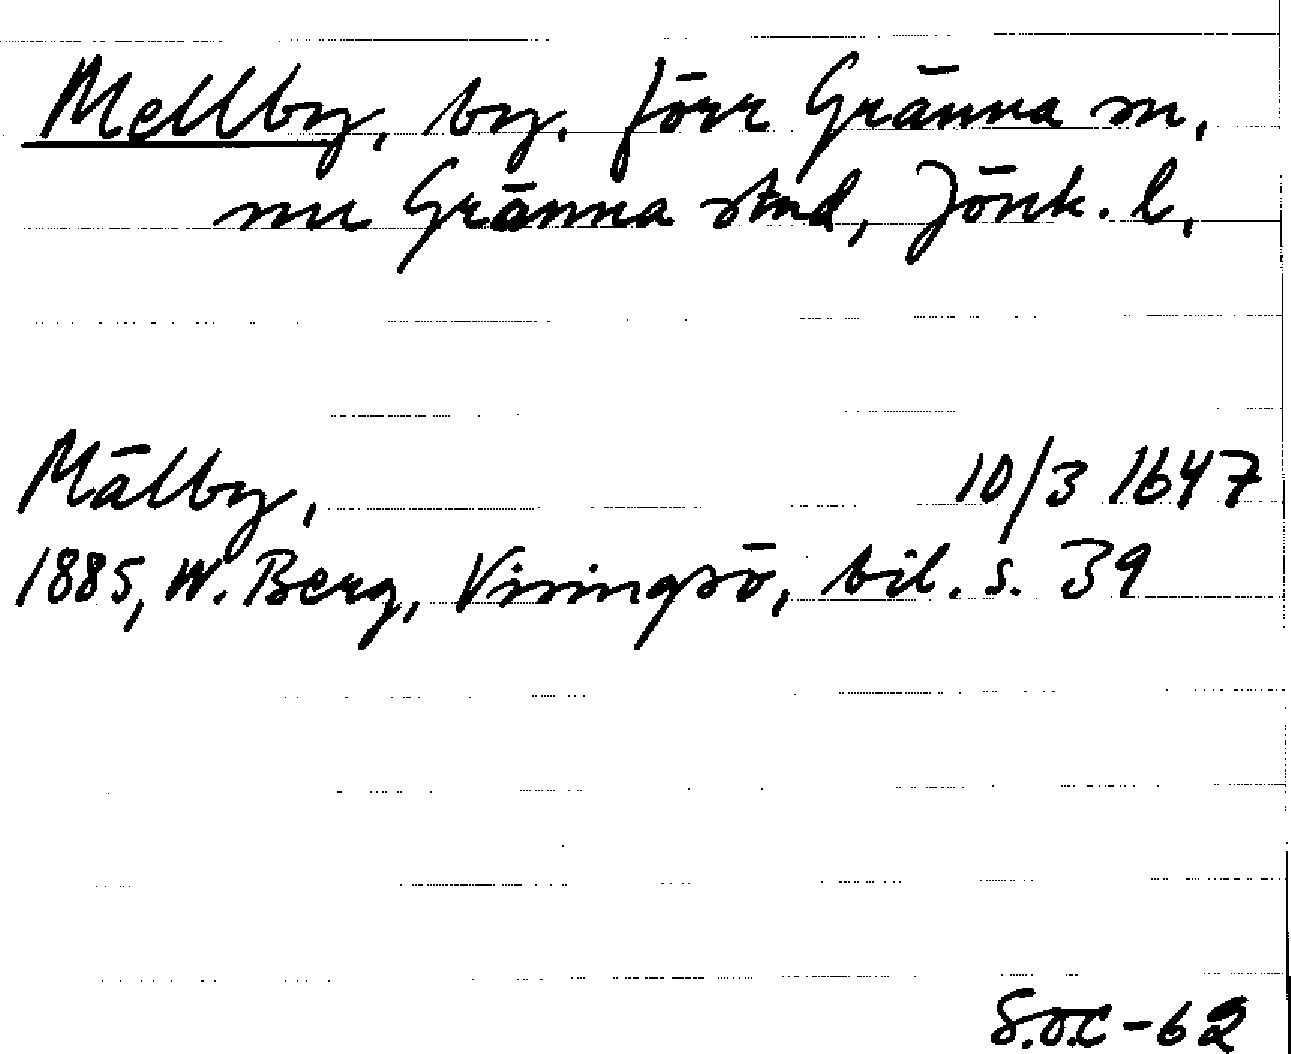 Mellby, by. förr Gränna sn,
nu Gränna stad, Jönk. l,
Mälby, 10/3 1647
1885, W. Berg, Visingsö, bil. s. 39
S.O.C-62